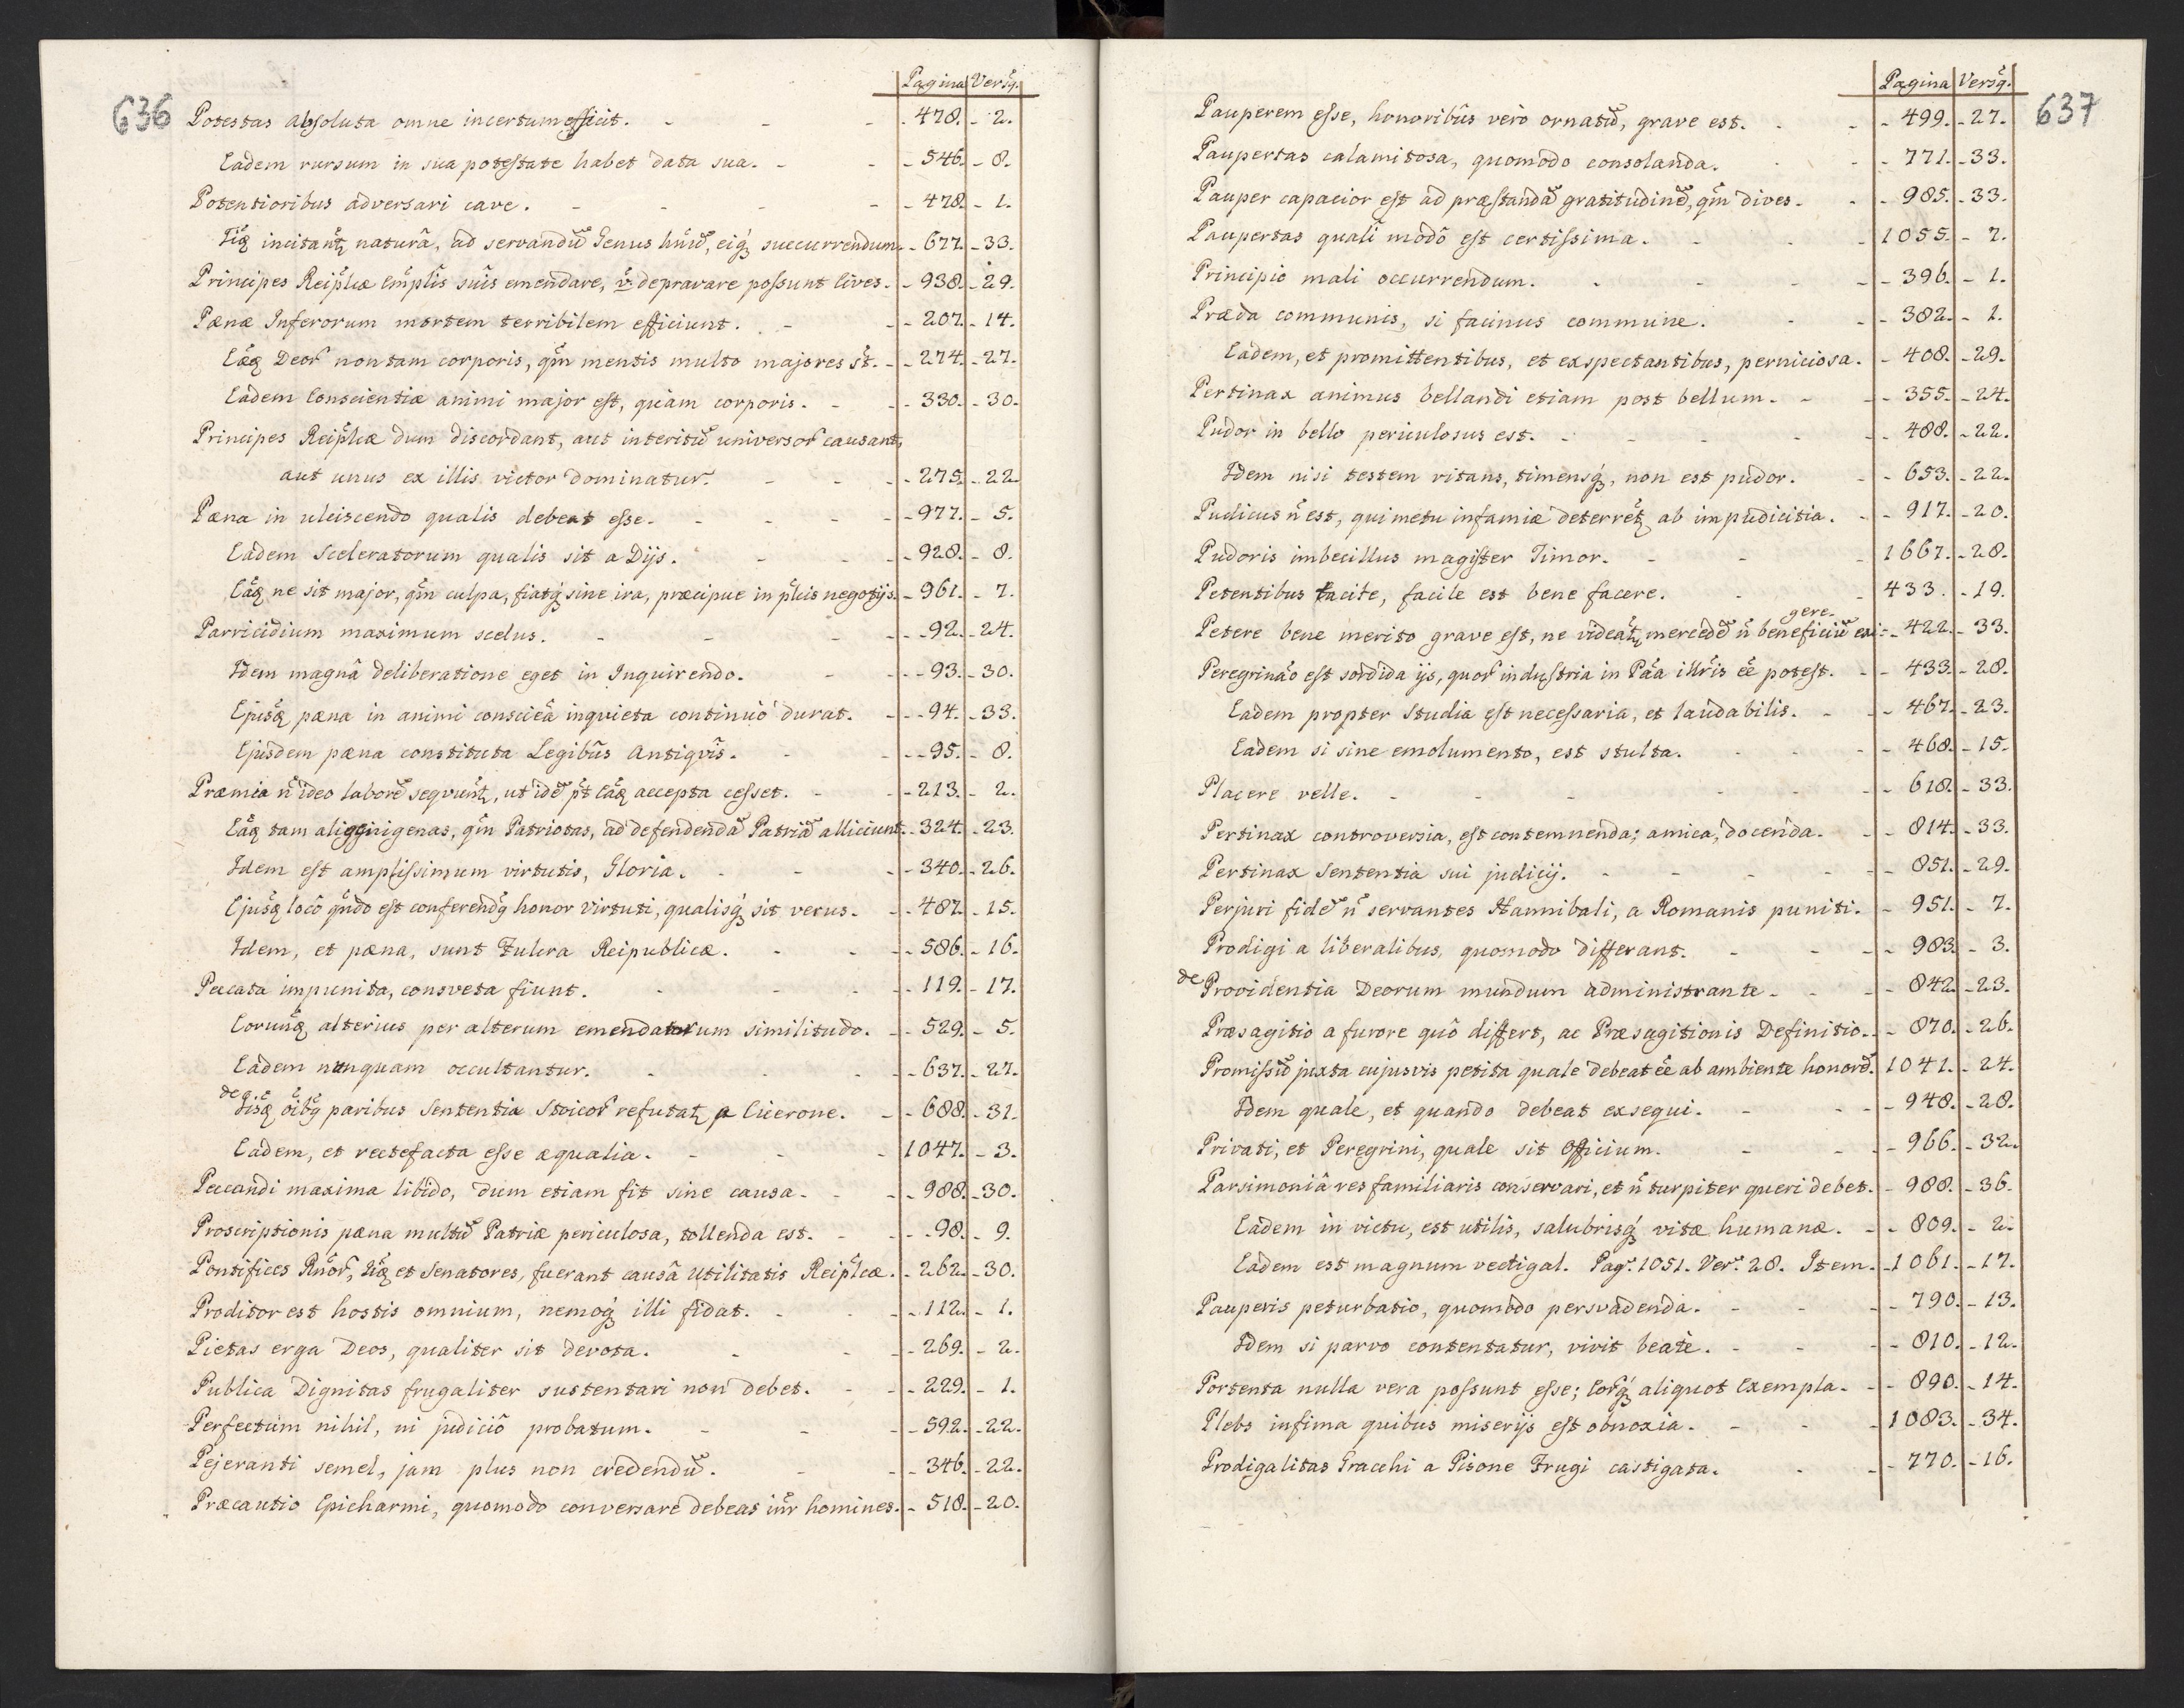 636
Pagina Versq.
Potestas absoluta omne incertum efficit. - 478. - 2.
Eadem rursum in sua potestate habet data sua. - 546. - 8.
Potentioribus adversari cave. - 478. - 1.
Iiq incitantr natura, ad servandū Genus hūnū, eiq́ succurrendum. - 677. - 33.
Principes Reiplicæ Emplis suis emendare, v: depravare possunt Cives. - 938. - 29.
Pænæ Inferorum mortem terribilem efficiunt. - 207. - 14.
Eæq Deor̄ non tam corporis, qm̄ mentis multo majores st̄. - 274. - 27.
Eadem Conscientiæ animi major est, quàm corporis. - 330. - 30.
Principes Reiplicæ dum discordant, aut interitū universor̄ causant,
aut unus ex illis victor dominatur. - 275. - 22.
Pæna in ulciscendo qualis debeat esse. - 977. - 5.
Eadem Sceleratorum qualis sit a Dijs. - 928. - 8.
Eáq ne sit major, qm̄ culpa, fiatq́ sine ira, præcipue in plicis negotijs. - 961. - 7.
Parricidium maximum scelus. - 92. - 24.
Idem magnâ deliberatione eget in Inquirendo. - 93. - 30.
Ejusq pæna in animi consciēa inquieta continuò durat. - 94. - 33.
Ejusdem pæna constituta Legibûs Antiqvîs. - 95. - 8.
Præmia n̄ ideo laborē seqvuntr, ut idē pt̄ Eáq accepta cesset. - 213. - 2.
Eáq tam aligenigenas, qm̄ Patriotas, ad defendendā Patriā alliciunt. - 324. - 23.
Idem est amplissimum virtutis, Gloria. - 340. - 26.
Ejusq locô qndo est conferendq honor virtuti, qualisq́ sit verus. - 487. - 15.
Idem, et pæna, sunt Fulcra Reipublicæ. - 586. - 16.
Peccata impunita, consveta fiunt. - 119. - 17.
Eorunq alterius per alterum emendatorum similitudo. - 529. - 5.
Eadem nunquam occultantur. - 637. - 27.
de Iisq oibq paribus Sententia Stoicor̄ refutatr a Cicerone. - 688. - 31.
Eadem, et rectefacta esse æqualia. - 1047. - 3.
Peccandi maxima libido, dum etiam fit sine causa. - 988. - 30.
Proscriptionis pæna multū Patriæ periculosa, tollenda est. - 98. - 9.
Pontifices Rnor̄, Iiq et Senatores, fuerant causâ Utilitatis Reiplicæ. - 262. - 30.
Proditor est hostis omnium, nemoq́ illi fidat. - 112. - 1.
Pietas erga Deos, qualiter sit devota. - 269. - 2.
Publica Dignitas frugaliter sustentari non debet. - 229. - 1.
Perfectum nihil, ni judiciô probatum. - 592. - 22.
Pejeranti semel, jam plus non credendū. - 346. - 22.
Præcautio Epicharmi, quomodo conversare debeas intr homines. - 518. - 20.
637
Pagina Versq.
Pauperem esse, honoribûs verò ornatū, grave est. - 499. - 27.
Paupertas calamitosa, quomodo consolanda. - 771. - 33.
Pauper capacior est ad præstandā gratitudinē, qm̄ dives. - 985. - 33.
Paupertas quali modô est certissima. - 1055. - 7.
Principio mali occurrendum. - 396. - 1.
Præda communis, si facinus commune. - 382. - 1.
Eadem, et promittentibus, et exspectantibus, perniciosa. - 408. - 29.
Pertinax animus bellandi etiam post bellum. - 355. - 24.
Pudor in bello periculosus est. - 488. - 22.
Idem nisi testem vitans, timensq́, non est pudor. - 653. - 22.
Pudicus n̄ est, qui metu infamiæ deterretr ab impudicitia. - 917. - 20.
Pudoris imbecillus magister Timor. - 1667. - 28.
Petentibus tacite, facile est bene facere. - 433. - 19.
Petere bene merito grave est, ne videatr mercedē n̄ beneficiū exi= gere. - 422. - 33.
Peregrinao est sordida ijs, quor̄ industria in Pāa illris ee potest. - 433. - 28.
Eadem propter Studia est necessaria, et laudabilis. - 467. - 23.
Eadem si sine emolumento, est stulta. - 468. - 15.
Placere velle. - 618. - 33.
Pertinax controversia, est contemnenda; amica, docenda. - 814. - 33.
Pertinax Sententia sui judicij. - 851. - 29.
Perjuri fidē n̄ servantes Hannibali, a Romanis puniti. - 951. - 7.
Prodigi a liberalibus, quomodo differant. - 983. - 3.
de Providentia Deorum mundum administrante. - 842. - 23.
Præsagitio a furore quô differt, ac Præsagitionis Definitio. - 870. - 26.
Promissū juxta cujusvis petita quale debeat ee ab ambiente honorē. 1041. - 24.
Idem quale, et quando debeat exsequi. - 948. - 28.
Privati, et Peregrini, quale sit Officium. - 966. - 32.
Parsimoniâ res familiaris conservari, et n̄ turpiter queri debet. - 988. - 36.
Eadem in victu, est utilis, salubrisq́ vitæ humanæ. - 809. - 2.
Eadem est magnum vectigal. Pag: 1051. Ver: 28. Item. - 1061. - 17.
Pauperis peturbatio, quomodo persvadenda. - 790. - 13.
Idem si parvo contentatur, vivit beatè. - 810. - 12.
Portenta nulla vera possunt esse; Eorq́ aliquot Exempla. - 890. - 14.
Plebs infima quibus miserijs est obnoxia. - 1083. - 34.
Prodigalitas Gracchi a Pisone Frugi castigata. - 770. - 16.